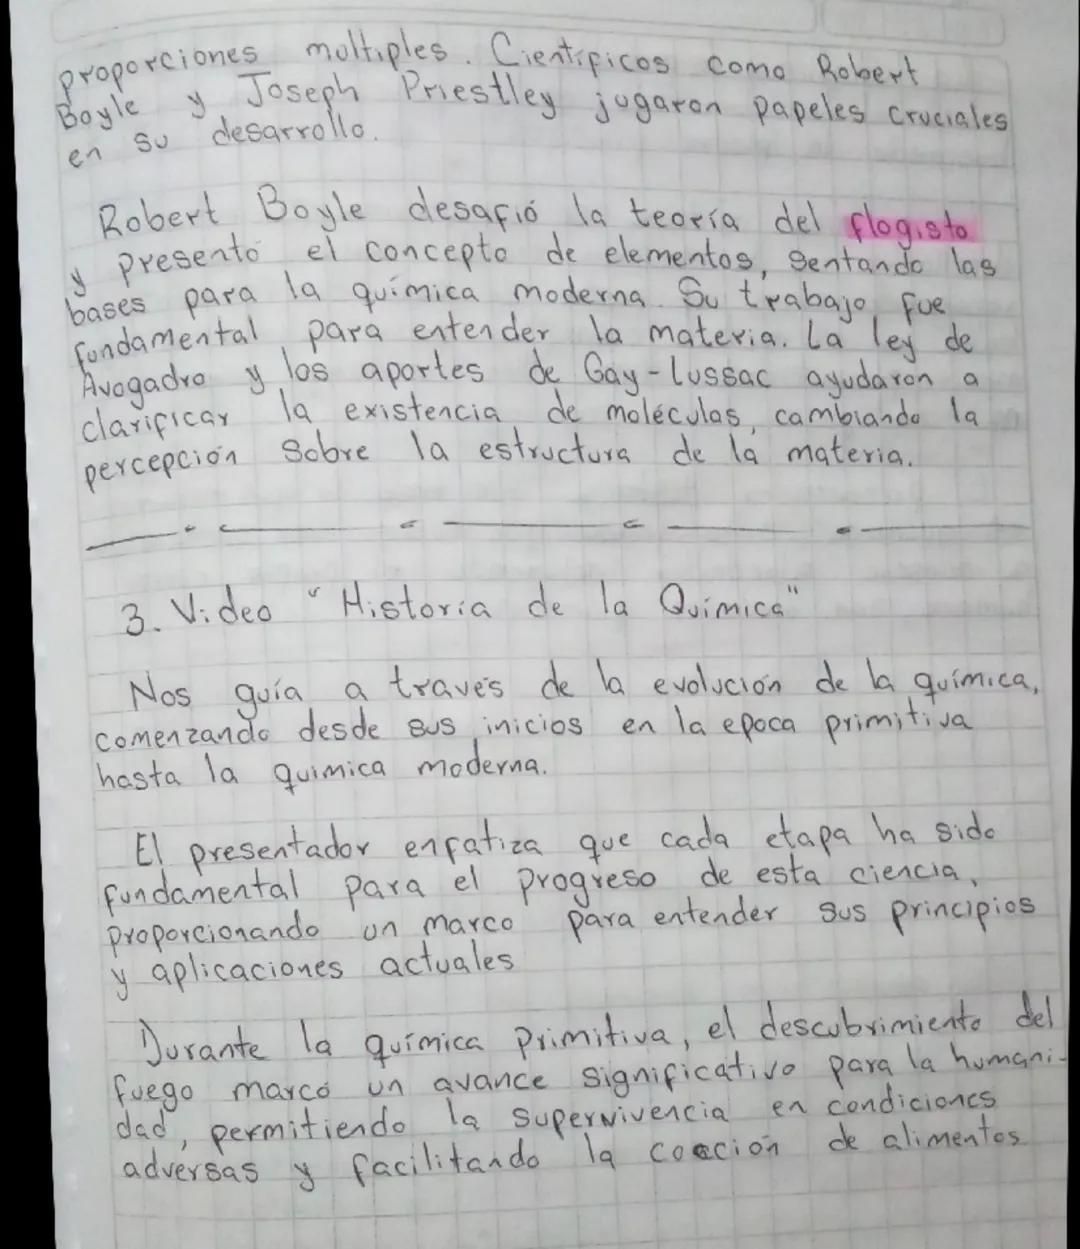 proporciones moltiples. Científicos como Robert
Boyle y Joseph Priestley jugaron papeles cruciales
en su desarrollo.
Robert Boyle desafió la teoría del flogisto
y presentó el concepto de elementos, sentando las
bases para la química moderna. Su trabajo fue
fundamental para entender la materia. La ley de
Avogadro y los aportes de Gay-Lussac ayudaron a
clarificar la existencia de moléculas, cambiando la
percepción sobre la estructura de la materia.
3. Video "Historia de la Química"
Nos guía a través de la evolución de la química,
comenzando desde sus inicios en la epoca primitiva
hasta la química moderna.
El presentador enfatiza que cada etapa ha sido
fundamental para el progreso de esta ciencia,
proporcionando un marco para entender sus principios
y aplicaciones actuales
Durante la química primitiva, el descubrimiento del
fuego marcó un avance significativo para la humani-
dad, permitiendo la supervivencia en condiciones
adversas y facilitando la cocción de alimentos